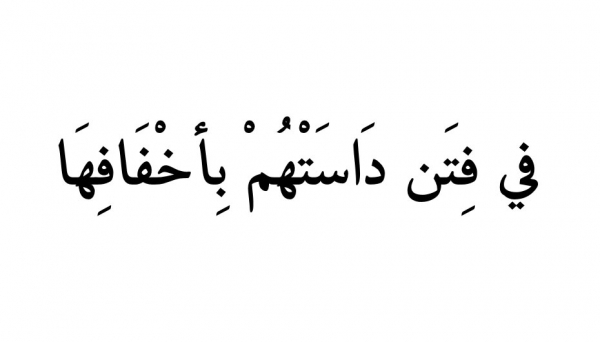 في فِتَن دَاسَتْهُمْ بِأخْفَافِهَا